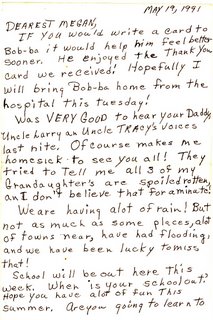 MAY 19, 1991
DEAREST MEGAN,
IF YOU WOULD WRITE A CARD TO
Bob-ba it would help him feel better
sooner. He enjoyed the Thank You
card we received! Hopefully I
will bring Bob-ba home from the
hospital this tuesday!
Was VERY GOOD to hear your Daddy,
Uncle Larry an Uncle TRACY'S VOICES
last nite. Ofcourse makes me
homesick to see you all! They
tried to Tell me all 3 of my
Grandaughter's are spoiled rotten,
an I don't believe that for a minute!
We are having alot of rain! But
not as much as some places, alot
of towns near, have had flooding,
and we have been lucky to miss
that!
School will be out here This
week. When is your school out?
Hope you have alot of fun This
summer. Are you going to learn to